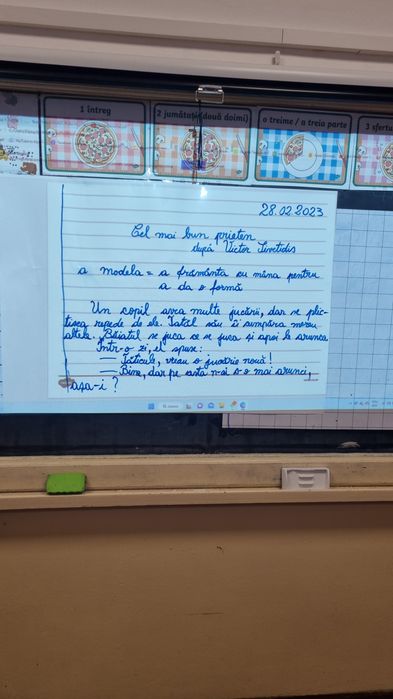 1 întreg
2 jumătăți (două doimi)
o treime / a treia parte
3 sfertu
28.02.2023
Cel mai bun prieten
după Victor Sivetidis
a modela = a frământa cu mâna pentru
a da o formă
Un copil avea multe jucării, dar se plic-
tisea repede de ele. Tatăl său îi cumpăra mereu
altele. Băiatul se juca ce se juca și apoi le arunca.
Într-o zi, el spuse:
— Tăticule, vreau o jucărie nouă!
— Bine, dar pe asta n-ai s-o mai arunci,
așa-i?